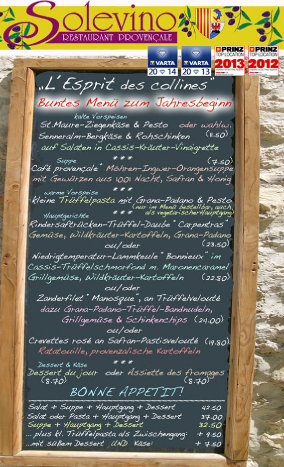 Solevino
RESTAURANT PROVENÇALE
VARTA VARTA
2014 2013
PRINZ PRINZ
TOP LOCATION TOP LOCATION
2013 2012
„L'Esprit des collines"
Buntes Menü zum Jahresbeginn
kalte Vorspeisen
St.Maure-Ziegenkäse & Pesto oder wahlw.
Senneralm-Bergkäse & Rohschinken (8.50)
auf Salaten in Cassis-Kräuter-Vinaigrette
***
Suppe (7.50)
Café provençale" Möhren-Ingwer-Orangensuppe
mit Gewürzen aus 1001 Nacht, Safran & Honig
***
warme Vorspeise
kleine Trüffelpasta mit Grana-Padano & Pesto
(nur im Menü bestellbar, auch
als vegetarischer Hauptgang)
***
Hauptgerichte
Rindersaftrücken-Trüffel-Daube" Carpentras
Gemüse, Wildkräuter-Kartoffeln, Grana-Padano
ou/oder (23.50)
Niedrigtemperatur-Lammkeule" Bonnieux" im
Cassis-Trüffelschmorfond m. Maronencaramel
Grillgemüse, Wildkräuter-Kartoffeln (22.80)
ou/oder
Zanderfilet" Manosque", an Trüffelvelouté
dazu Grana-Padano-Trüffel-Bandnudeln,
Grillgemüse & Schinkenchips (24.00)
ou/oder
Crevettes rosé an Safran-Pastisvelouté (19.80)
Ratatouille, provenzalische Kartoffeln
***
Dessert & Käse
Dessert du jour oder Assiette des fromages
(8.70) (8.70)
BONNE APPETIT!
Salat + Suppe + Hauptgang + Dessert 42.50
Salat oder Pasta + Hauptgang + Dessert 37.00
Suppe + Hauptgang + Dessert 32.50
... plus kl. Trüffelpasta als Zwischengang: + 9.50
...mit süßem Dessert UND Käse: + 7.50